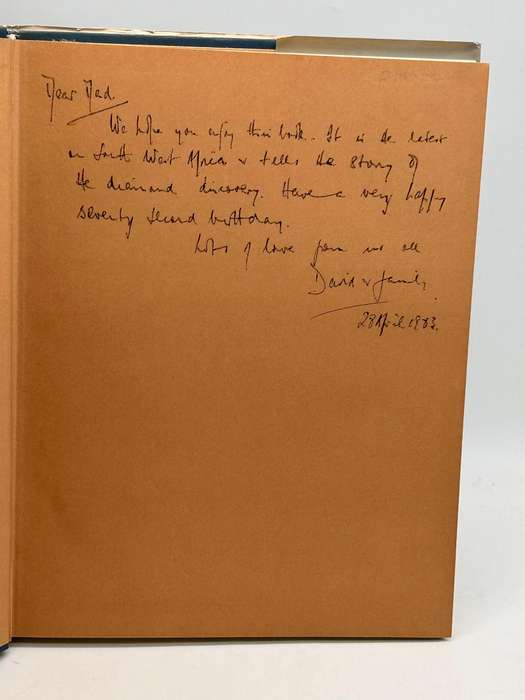 Dear Dad.
We hope you enjoy this book. It is the latest
on South West Africa & tells the story of
the diamond discovery. Have a very happy
seventy second birthday.
Lots of love from us all
David & family.
28 April 1983.